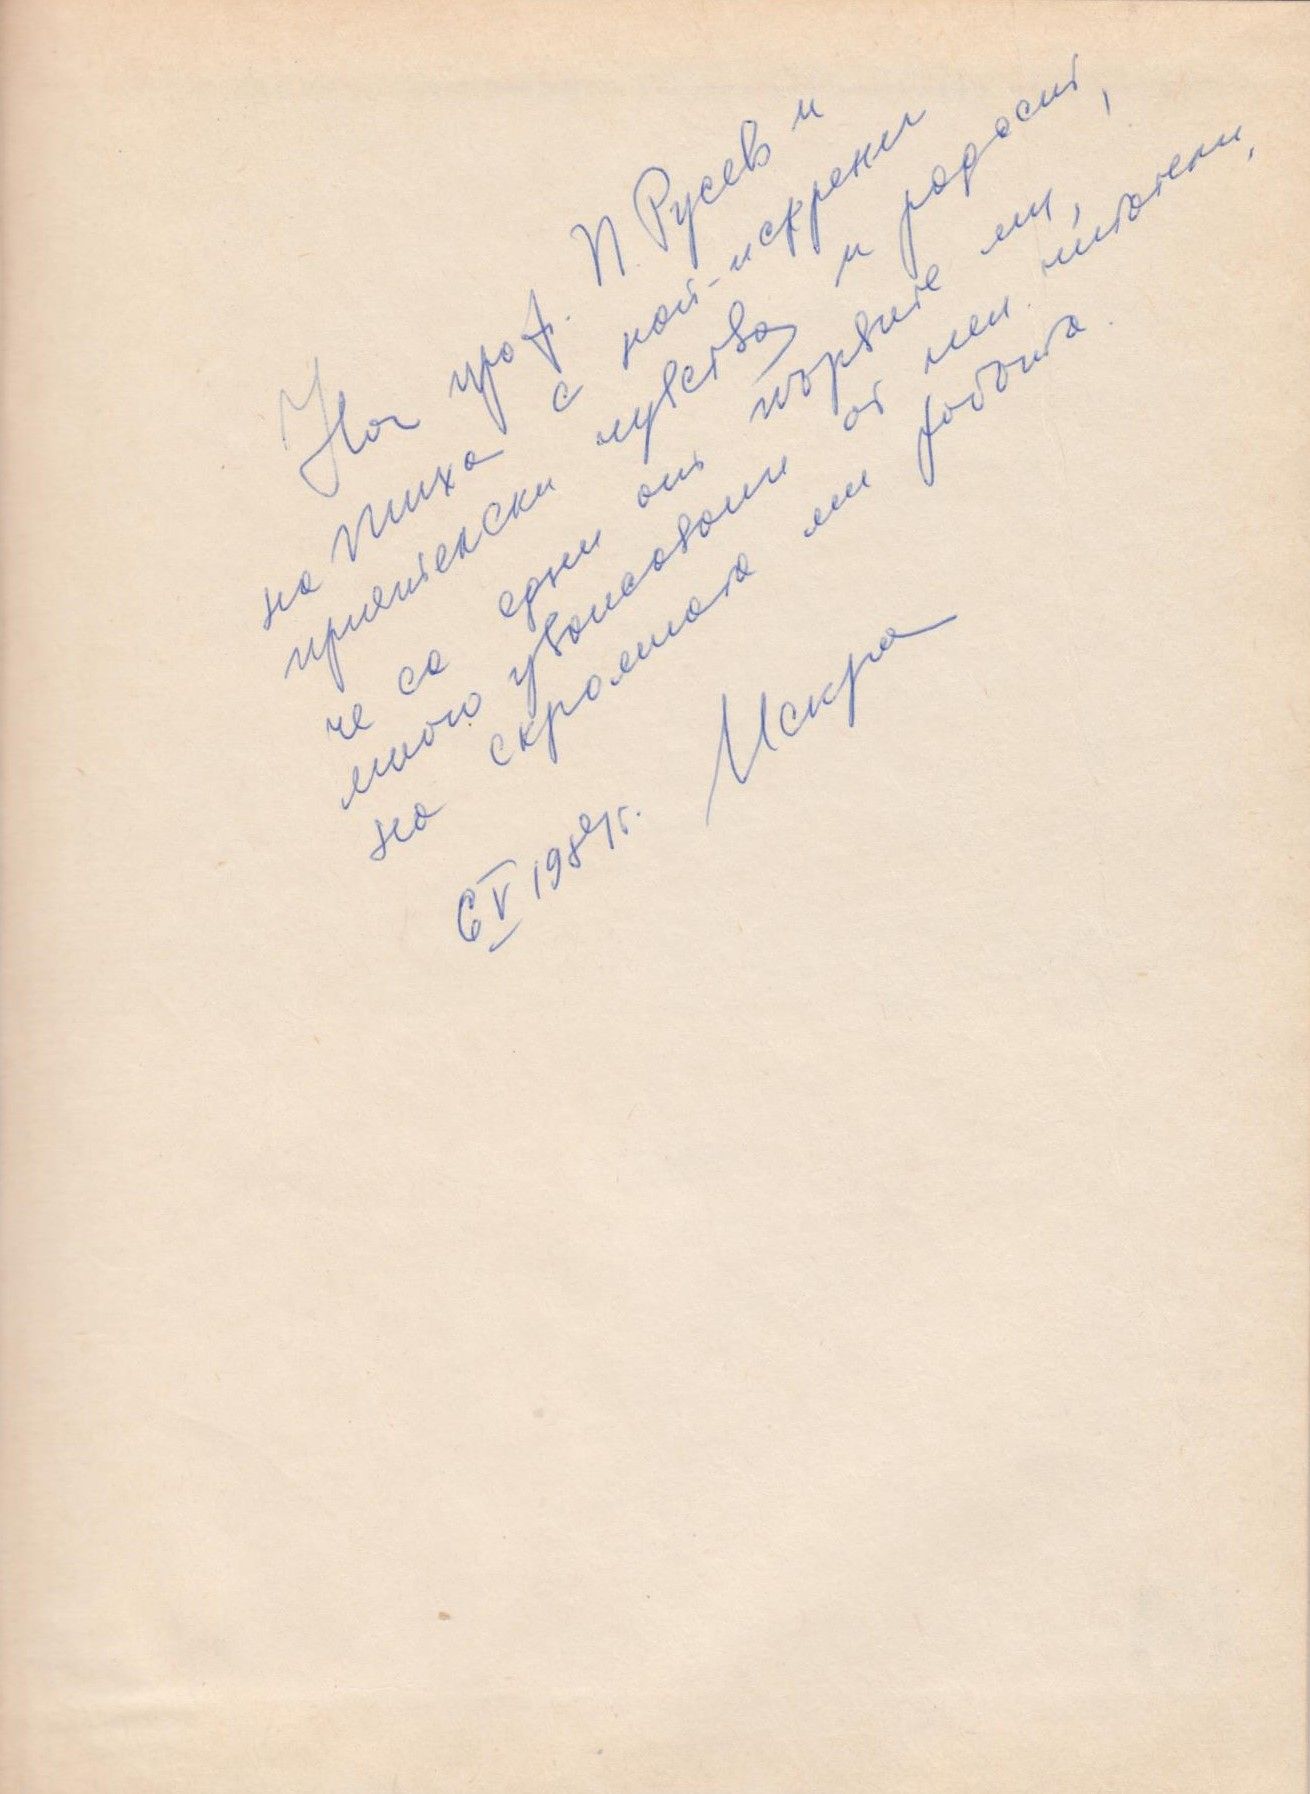 На проф. П. Русев и
на Тиха с най-искрени
приятелски чувства и радост,
че са едни от първите ми,
много уважавани от мен читатели,
на скромната ми работа.
Искра
6 V 1984 г.